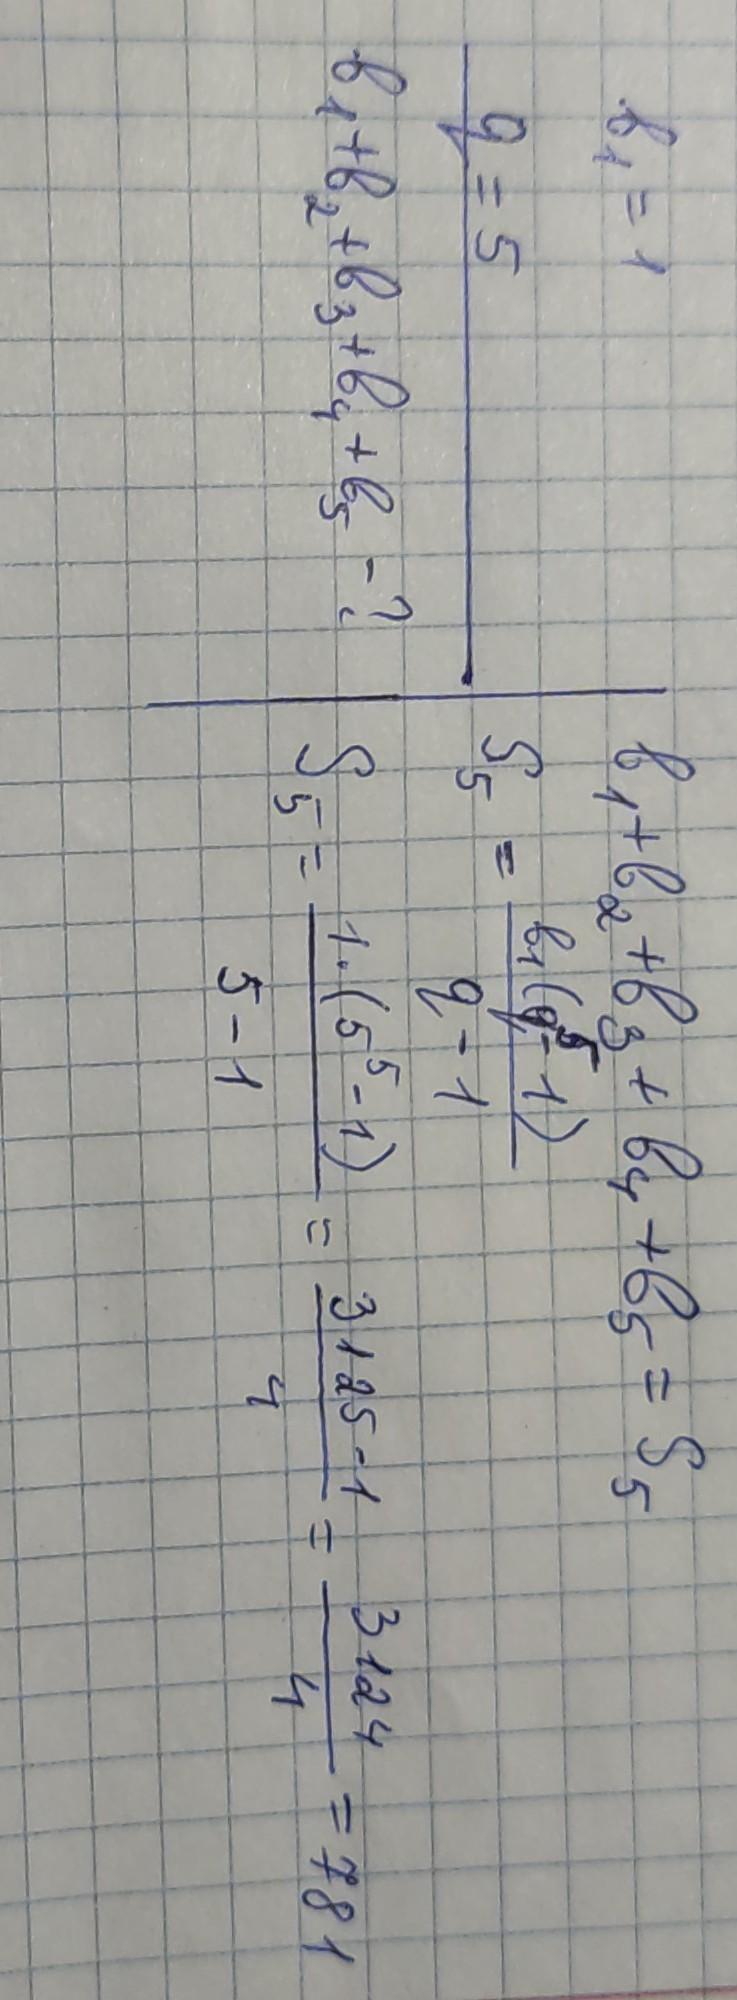 b₁ = 1
q = 5
b₁ + b₂ + b₃ + b₄ + b₅ - ?
b₁ + b₂ + b₃ + b₄ + b₅ = S₅
S₅ = b₁(q⁵ - 1) / q - 1
S₅ = 1·(5⁵ - 1) / 5 - 1 = 3125 - 1 / 4 = 3124 / 4 = 781